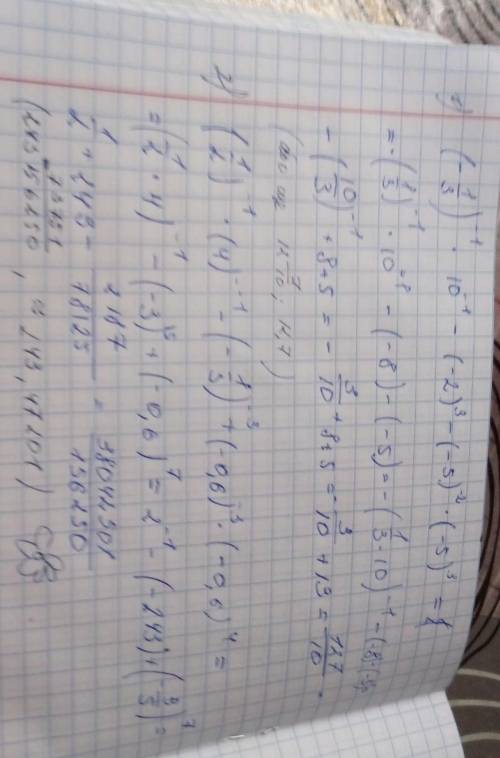 1) (-1/3)^-1 · 10^-1 - (-2)^3 - (-5)^-2 · (-5)^3 =
= -(1/3)^-1 · 10^-1 - (-8) - (-5) = -(1/3 · 10)^-1 - (-8) - (-5)
- (10/3)^-1 + 8 + 5 = - 3/10 + 8 + 5 = - 3/10 + 13 = 127/10 .
12 7/10 ; 12,7 )
2) (1/2)^-1 · (4)^-1 - (-1/3)^-3 + (-0,6)^3 · (-0,6)^4 =
= (1/2 · 4)^-1 - (-3)^5 + (-0,6)^7 = 2^-1 - (-243) + (-3/5)^7 =
1/2 + 243 - 2187/78125 = 38042201/156250
(243 , ≈ 243,47201 )